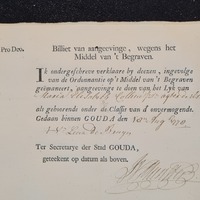 Pro Deo.
Billiet van aangeevinge, wegens het
Middel van 't Begraven.
IK ondergeschreve verklaare by deezen, ingevolge
van de Ordonnantie op 't Middel van 't Begraven
geëmaneert, aangeevinge te doen van het Lyk van
Maria Elisabeth
als gehoorende onder de Classis van d'onvermogende.
Gedaan binnen GOUDA, den 10 Aug 1770
Ter Secretarye der Stad GOUDA,
geteekent op datum als boven.